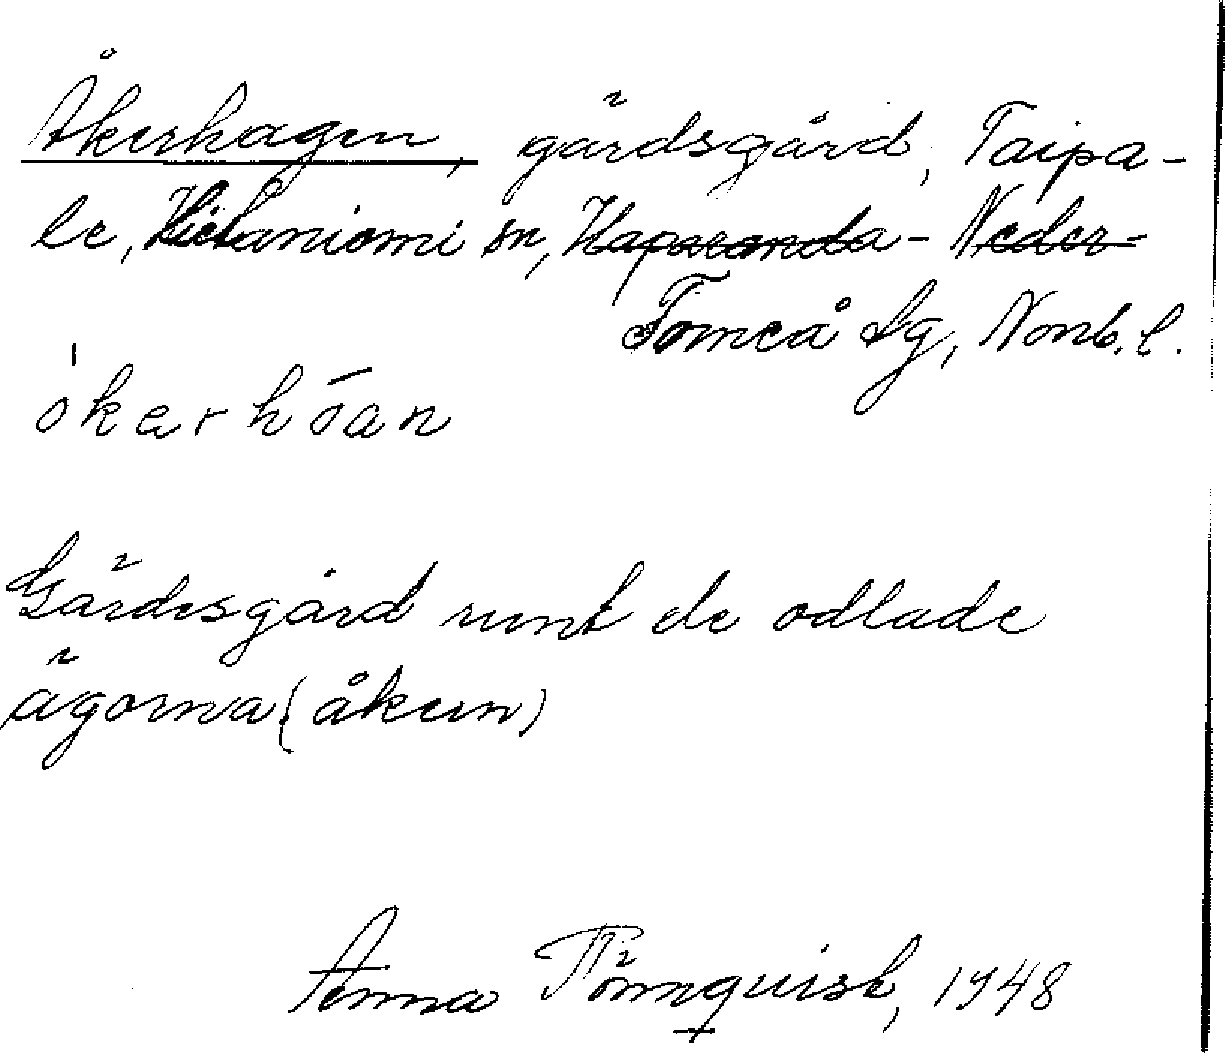 Åkerhagen, gärdsgård, Taipa-
le, Hietaniemi sn, Haparanda- Neder-
Torneå lg, Norrb. l.
ókerhōan
Gärdesgård runt de odlade
ägorna (åkern)
Anna Törnquist, 1948